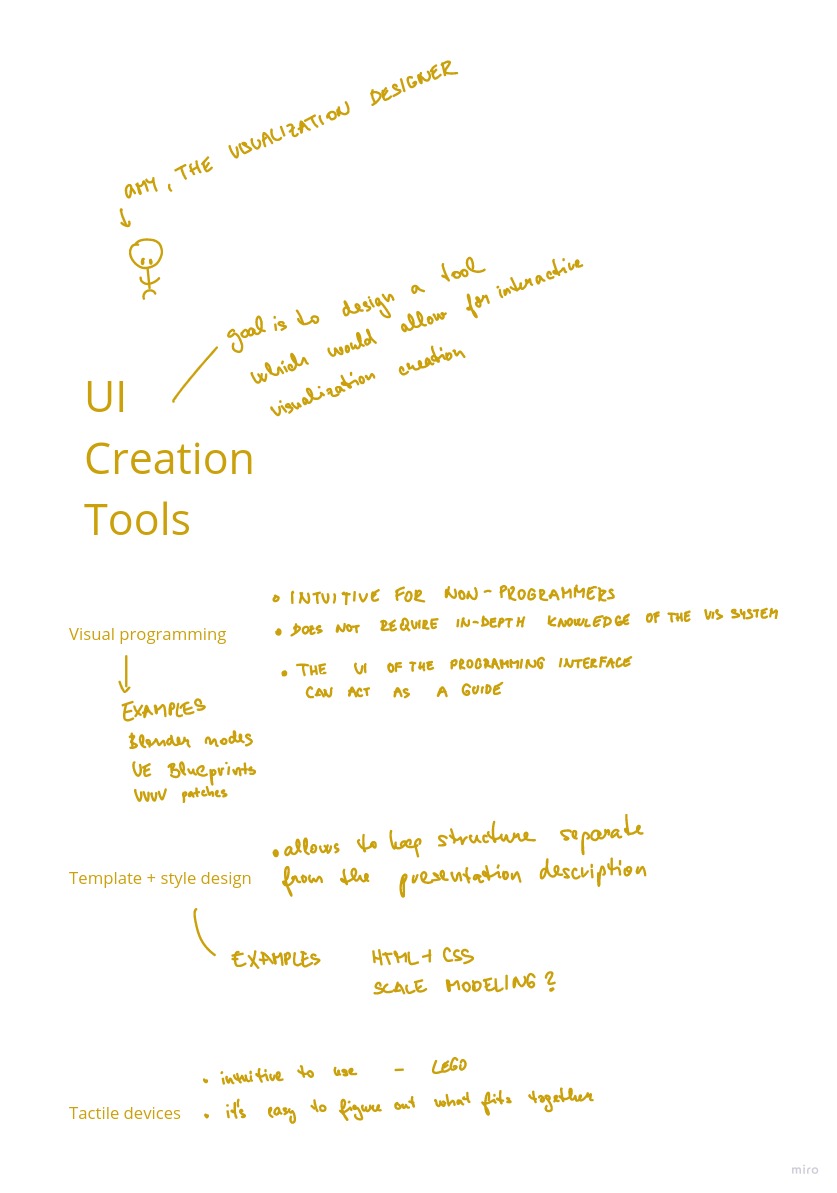 AMY, THE VISUALIZATION DESIGNER
goal is to design a tool
which would allow for interactive
visualization creation
UI
Creation
Tools
Visual programming
• INTUITIVE FOR NON-PROGRAMMERS
• DOES NOT REQUIRE IN-DEPTH KNOWLEDGE OF THE VIS SYSTEM
• THE UI OF THE PROGRAMMING INTERFACE
CAN ACT AS A GUIDE
EXAMPLES
Blender nodes
UE Blueprints
VVVV patches
Template + style design
• allows to keep structure separate
from the presentation description
EXAMPLES HTML + CSS
SCALE MODELING?
Tactile devices
• intuitive to use - LEGO
• it's easy to figure out what fits together
miro